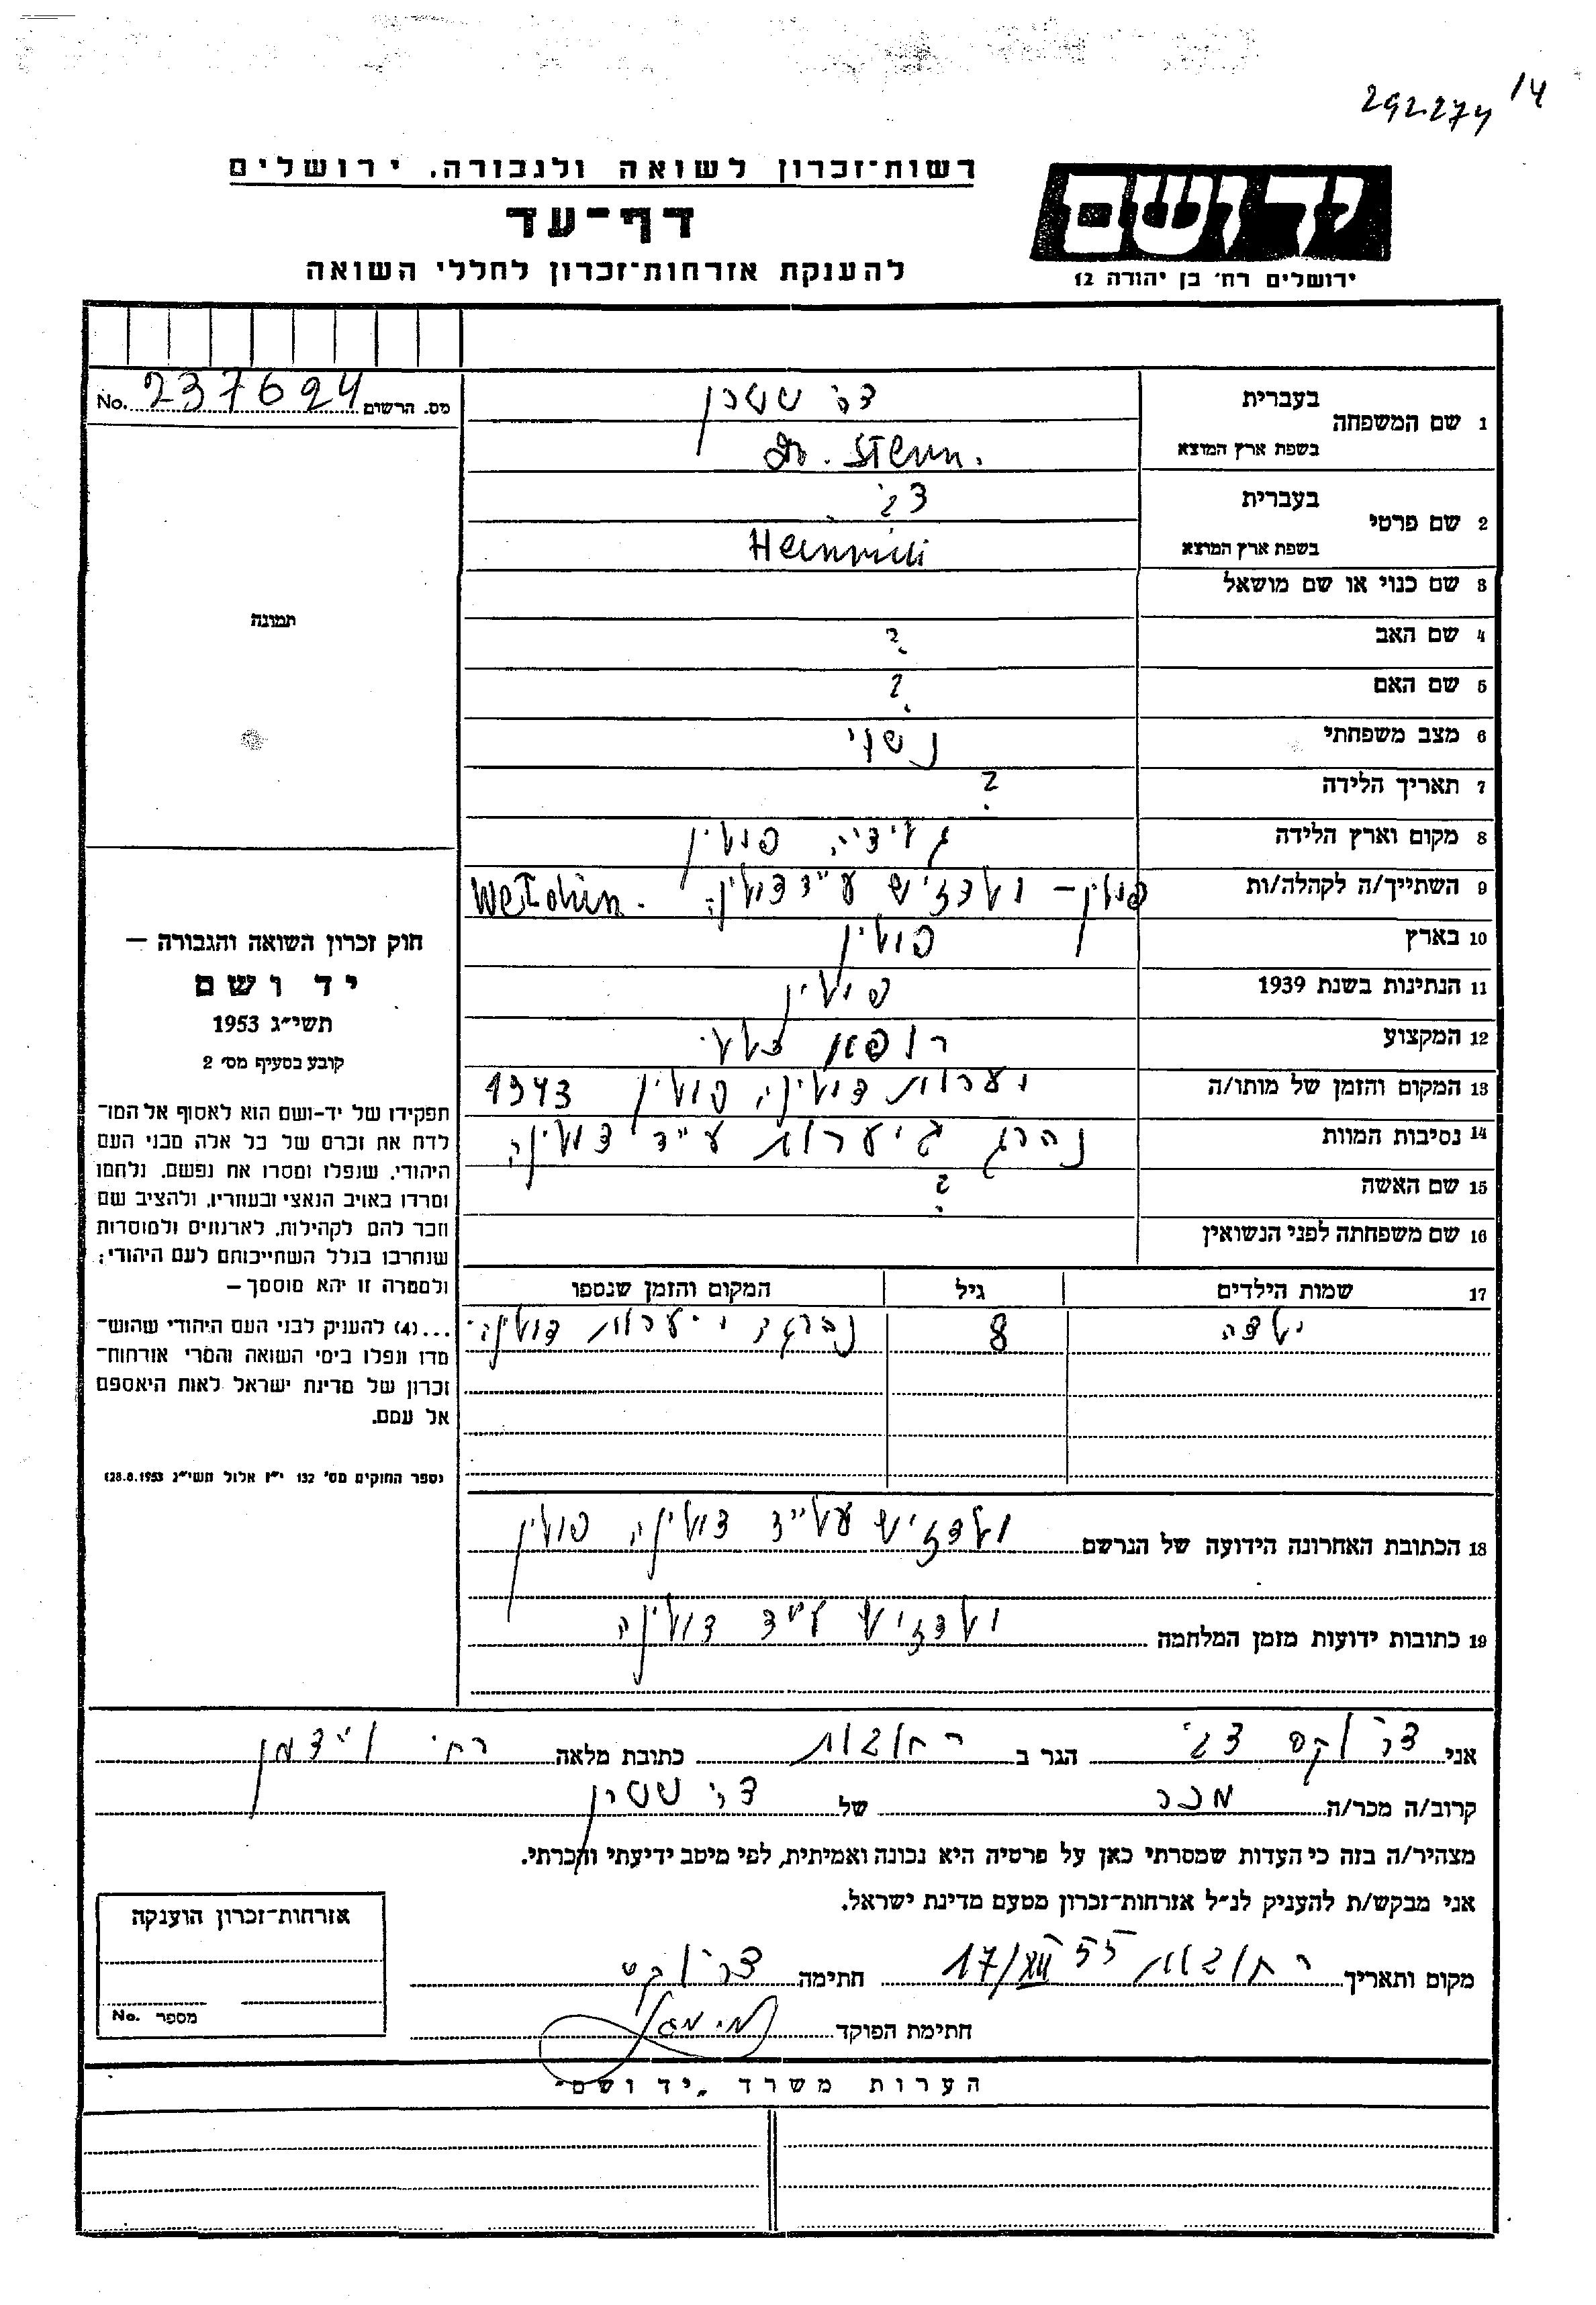 292.274 14
רשות־זכרון לשואה ולגבורה, ירושלים
דף־עד
להענקת אזרחות־זכרון לחללי השואה
יד ושם
ירושלים רח' בן יהודה 12
מס. הרשום 237624 No.
1 שם המשפחה
בעברית ד"ר שטרן
בשפת ארץ המוצא Dr. Stern.
2 שם פרטי
בעברית
בשפת ארץ המוצא Heinrich
3 שם כנוי או שם מושאל
4 שם האב ?
5 שם האם ?
6 מצב משפחתי נשוי
7 תאריך הלידה ?
8 מקום וארץ הלידה פולין
9 השתייך/ה לקהלה/ות פולין – ע"יד דולינה.
10 בארץ פולין
11 הנתינות בשנת 1939 פולין
12 המקצוע רופא כללי
13 המקום והזמן של מותו/ה יערות דולינה פולין 1943
14 נסיבות המוות נהרג ביערות ע"יד דולינה
15 שם האשה ?
16 שם משפחתה לפני הנשואין
17 שמות הילדים גיל המקום והזמן שנספו
ילדה 8 יערות דולינה
18 הכתובת האחרונה הידועה של הנרשם דולינה פולין
19 כתובות ידועות מזמן המלחמה ע"יד דולינה
תמונה
חוק זכרון השואה והגבורה –
יד ושם
תשי"ג 1953
קובע בסעיף מס' 2
תפקידו של יד-ושם הוא לאסוף אל המו־
לדת את זכרם של כל אלה מבני העם
היהודי, שנפלו ומסרו את נפשם, נלחמו
ומרדו באויב הנאצי ובעוזריו, ולהציב שם
וזכר להם לקהילות, לארגונים ולמוסדות
שנחרבו בגלל השתייכותם לעם היהודי;
ולמטרה זו יהא מוסמך –
...(4) להעניק לבני העם היהודי שהוש־
מדו ונפלו בימי השואה והמרי אזרחות־
זכרון של מדינת ישראל לאות היאספם
אל עמם.
(ספר החוקים מס' 132 י"ז אלול תשי"ג 28.8.1953)
אני הגר ב רחובות כתובת מלאה רח' וייצמן
קרוב/ה מכר/ה מכר של ד"ר שטרן
מצהיר/ה בזה כי העדות שמסרתי כאן על פרטיה היא נכונה ואמיתית, לפי מיטב ידיעתי והכרתי.
אני מבקש/ת להעניק לנ"ל אזרחות־זכרון מטעם מדינת ישראל.
מקום ותאריך רחובות 17/XII 55 חתימה
חתימת הפוקד
אזרחות־זכרון הוענקה
מספר No.
הערות משרד „יד ושם"